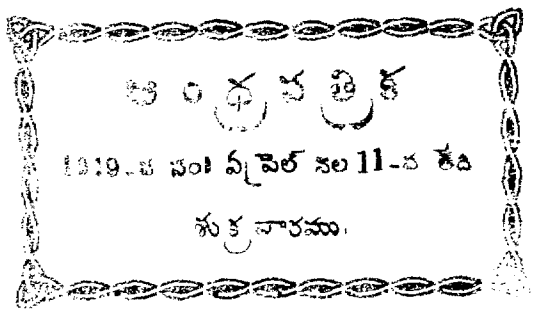 ఆంధ్రపత్రిక
1919-వ సం॥ ఏప్రిెల్ నెల 11-వ తేది
శుక్రవారము.